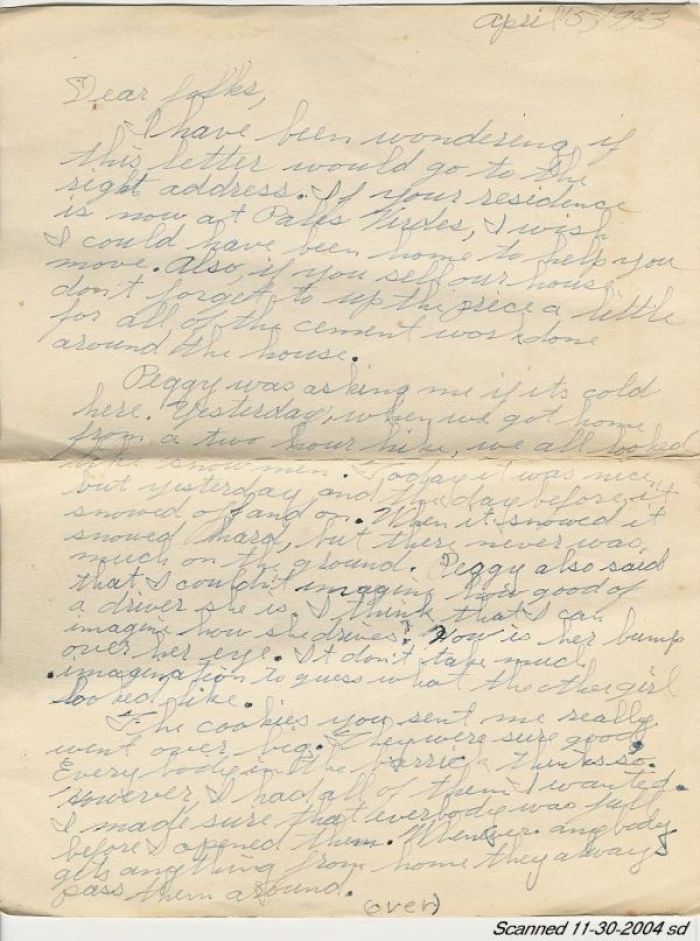 April 5, 1943
Dear folks,
I have been wondering if
this letter would go to the
right address. If your residence
is now at Palos Virdes, I wish
I could have been home to help you
move. Also, if you sell our house
don't forget to up the price a little
for all of the cement work done
around the house.
Peggy was asking me if its cold
here. Yesterday, when we got home
from a two hour hike, we all looked
like snow men. Today it was nice,
but yesterday and the day before, it
snowed off and on. When it snowed it
snowed hard, but there never was
much on the ground. Peggy also said
that I couldn't imagine how good of
a driver she is. I think that I can
imagine how she drives! How is her bump
over her eye. It don't take much
imagination to guess what the other girl
looked like.
The cookies you sent me really
went over big. They were sure good.
Everybody in the barrick thinks so.
However, I had all of them I wanted.
I made sure that everbody was full
before I opened them. Whenever anybody
gets anything from home they always
pass them around.
(over)
Scanned 11-30-2004 sd